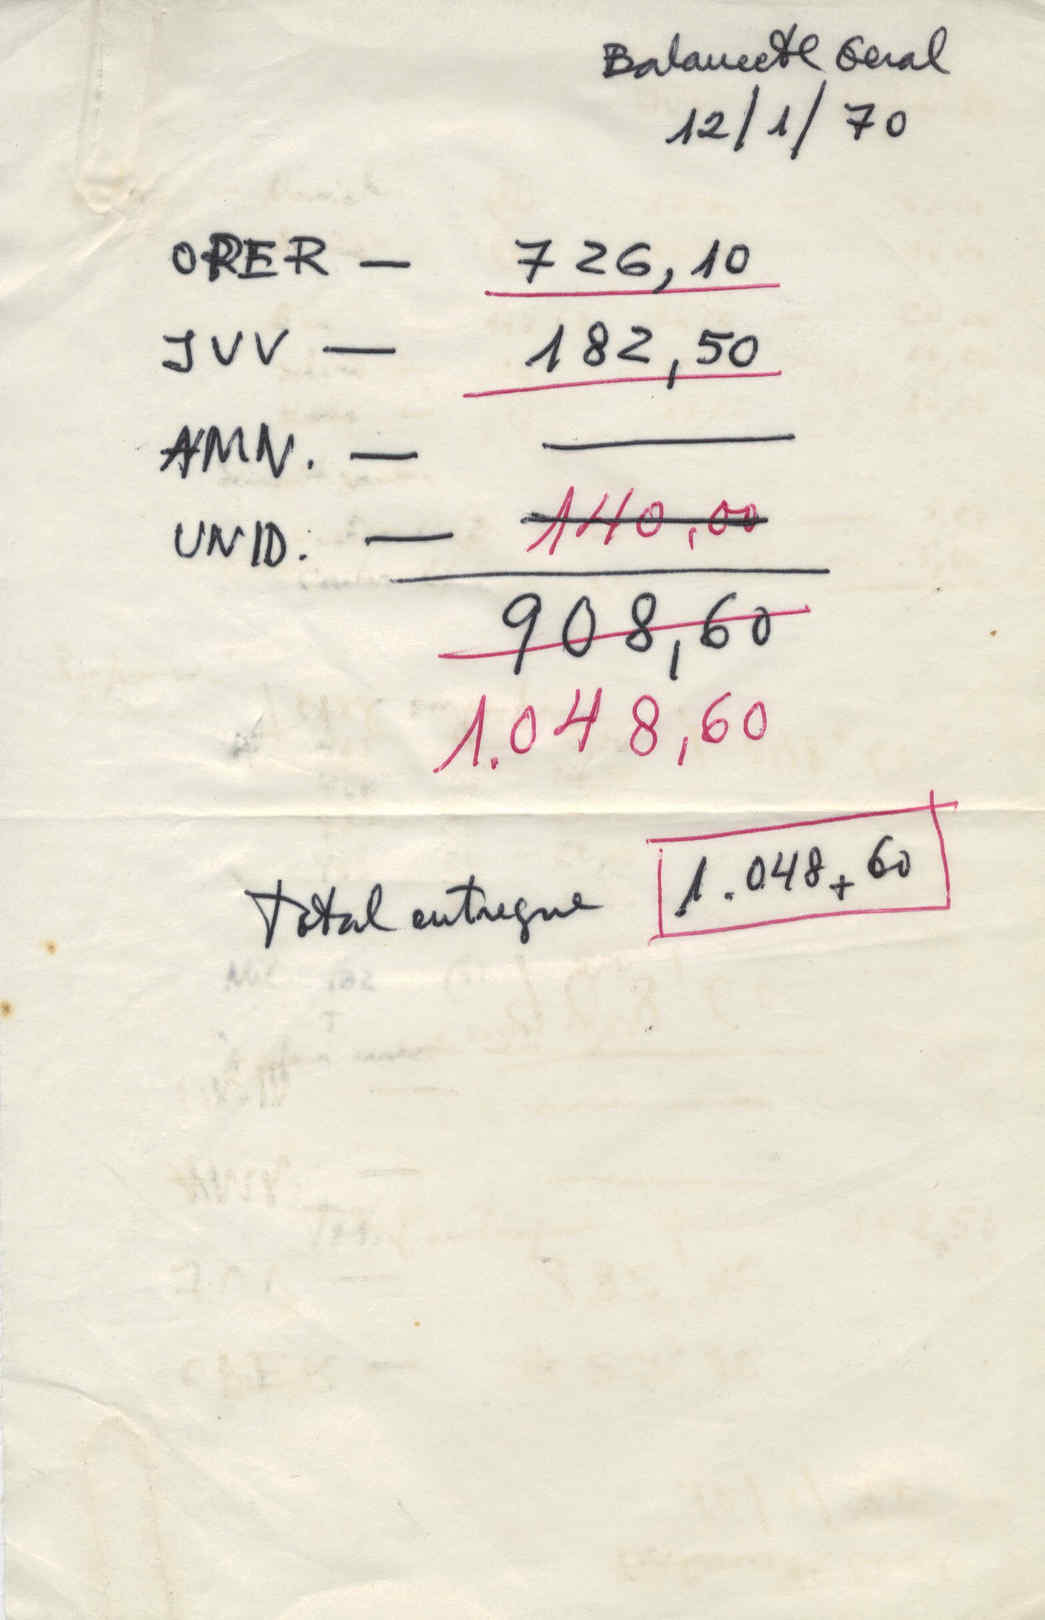 Balancete Geral
12/1/70
OPER — 726,10
JVV — 182,50
AMN. — ———
UNID. — 140,00
908,60
1.048,60
Total entregue 1.048,60